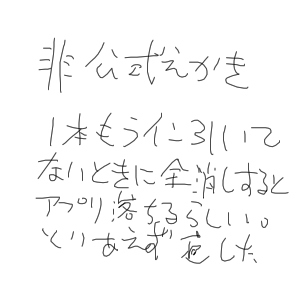 非公式えかき
1本もライン引いて
ないときに全消しすると
アプリ落ちるらしい。
とりあえず直した